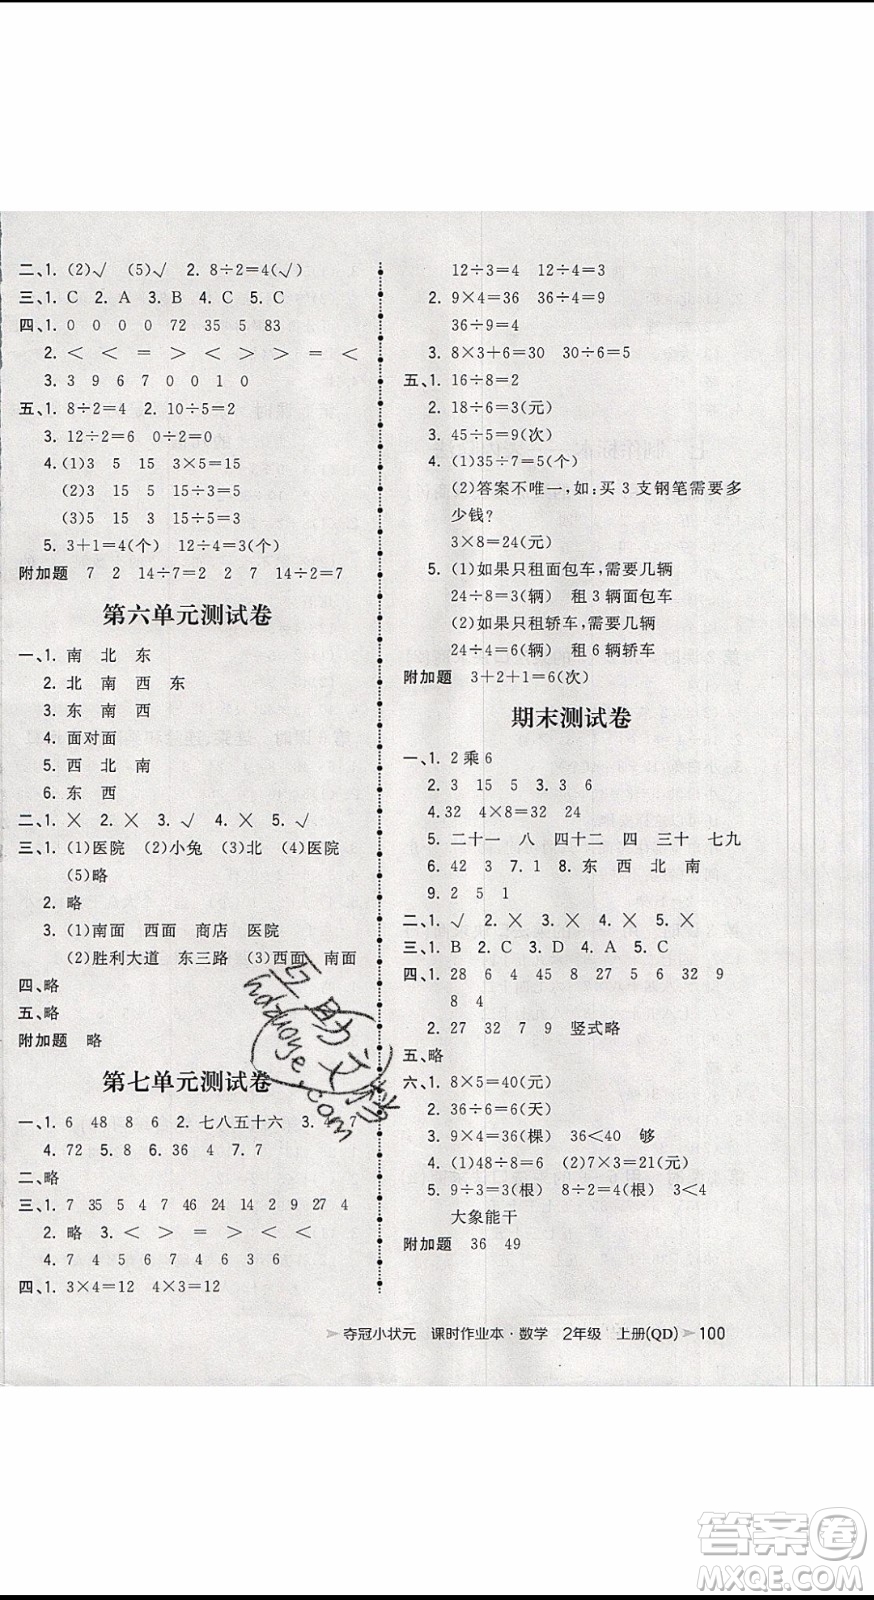 二、1. (2)√ (5)√ 2. 8÷2=4(√)
三、1. C 2. A 3. B 4. C 5. C
四、1. 0 0 0 0 72 35 5 83
2. < < = > < > > = <
3. 3 9 6 7 0 0 1 0
五、1. 8÷2=4 2. 10÷5=2
3. 12÷2=6 0÷2=0
4. (1)3 5 15 3×5=15
(2)3 15 5 15÷3=5
(3)5 15 3 15÷5=3
5. 3+1=4(个) 12÷4=3(个)
附加题 7 2 14÷7=2 2 7 14÷2=7
第六单元测试卷
一、1. 南 北 东
2. 北 南 西 东
3. 东 南 西
4. 面对面
5. 西 北 南
6. 东 西
二、1. × 2. × 3. √ 4. × 5. √
三、1. (1)医院 (2)小兔 (3)北 (4)医院
(5)略
2. 略
3. (1)南面 西面 商店 医院
(2)胜利大道 东三路 (3)西面 南面
四、略
五、略
附加题 略
第七单元测试卷
一、1. 6 48 8 6 2. 七八五十六 3. 4 7
4. 72 5. 8 6. 36 4 7. 7
二、略
三、1. 7 35 5 4 7 46 24 14 2 9 27 4
2. 略 3. < > = > < <
4. 7 4 5 6 7 6 3 6
四、1. 3×4=12 4×3=12
12÷3=4 12÷4=3
2. 9×4=36 36÷4=9
36÷9=4
3. 8×3+6=30 30÷6=5
五、1. 16÷8=2
2. 18÷6=3(元)
3. 45÷5=9(次)
4. (1)35÷7=5(个)
(2)答案不唯一,如:买 3 支钢笔需要多
少钱?
3×8=24(元)
5. (1)如果只租面包车,需要几辆
24÷8=3(辆) 租 3 辆面包车
(2)如果只租轿车,需要几辆
24÷4=6(辆) 租 6 辆轿车
附加题 3+2+1=6(次)
期末测试卷
一、1. 2乘6
2. 3 15 5 3. 3 6
4. 32 4×8=32 24
5. 二十一 八 四十二 四 三十 七九
6. 42 3 7. 1 8. 东 西 北 南
9. 2 5 1
二、1. √ 2. × 3. × 4. × 5. ×
三、1. B 2. C 3. D 4. A 5. C
四、1. 28 6 4 45 8 56 5 6 32 9
8 4
2. 27 32 7 9 竖式略
五、略
六、1. 8×5=40(元)
2. 36÷6=6(天)
3. 9×4=36(棵) 36<40 够
4. (1)48÷8=6 (2)7×3=21(元)
5. 9÷3=3(根) 8÷2=4(根) 3<4
大象能干
附加题 36 49
夺冠小状元 课时作业本·数学 2年级 上册(QD) 100
互助文档
hdzuoye.com
答案卷
MXQE.COM